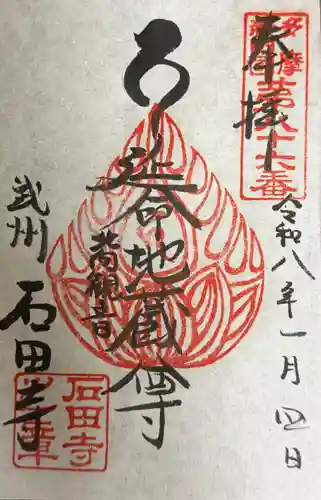 奉拝
多摩
八十六番
令和八年一月四日
延命地蔵尊
観音
武州
石田寺
石田寺